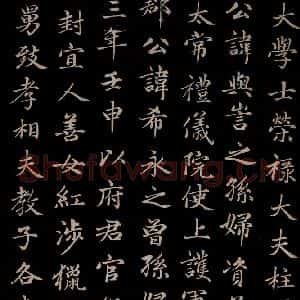 大學士榮祿大夫柱
公諱與訔之孫婦資
太常禮儀院使上護軍
郡公諱希永之曾孫婦
三年壬申以府君官
封宜人善女紅涉獵
舅致孝相夫教子各
Shufawang.CN